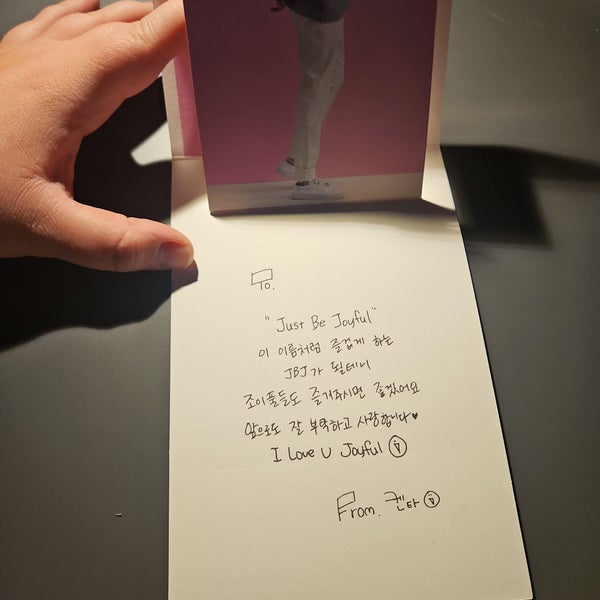 To.
"Just Be Joyful"
이 이름처럼 즐겁게 하는
JBJ가 될테니
조이풀들도 즐겨주시면 좋겠어요
앞으로도 잘 부탁하고 사랑합니다♥
I Love U Joyful
From. 켄타